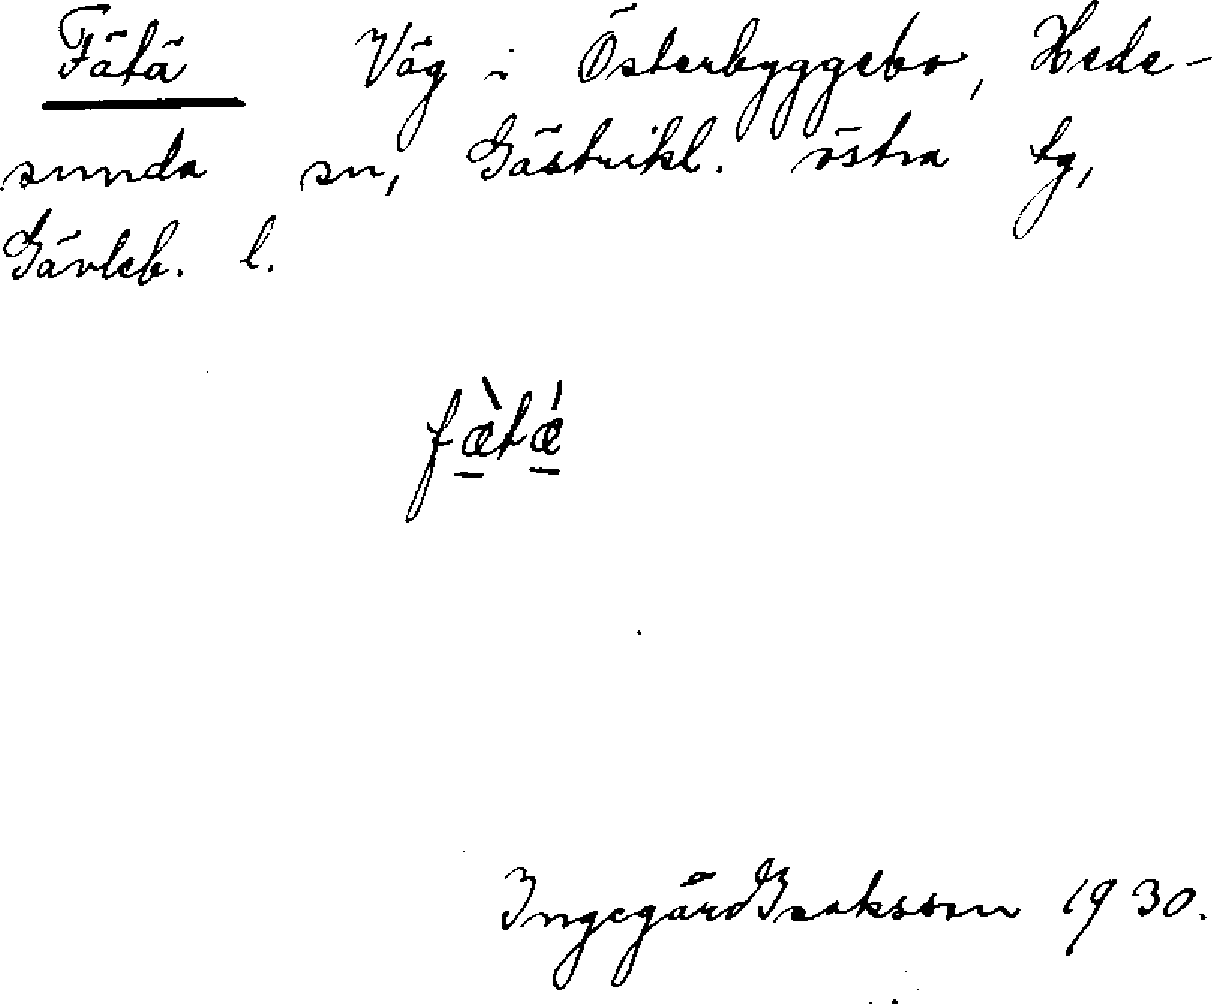 Fätä Väg i Österbyggebo, Hede-
sunda sn, Gästrikl. östra tg,
Gävleb. l.
fæ̱̀tǽ̱
Ingegärd Isaksson 1930.